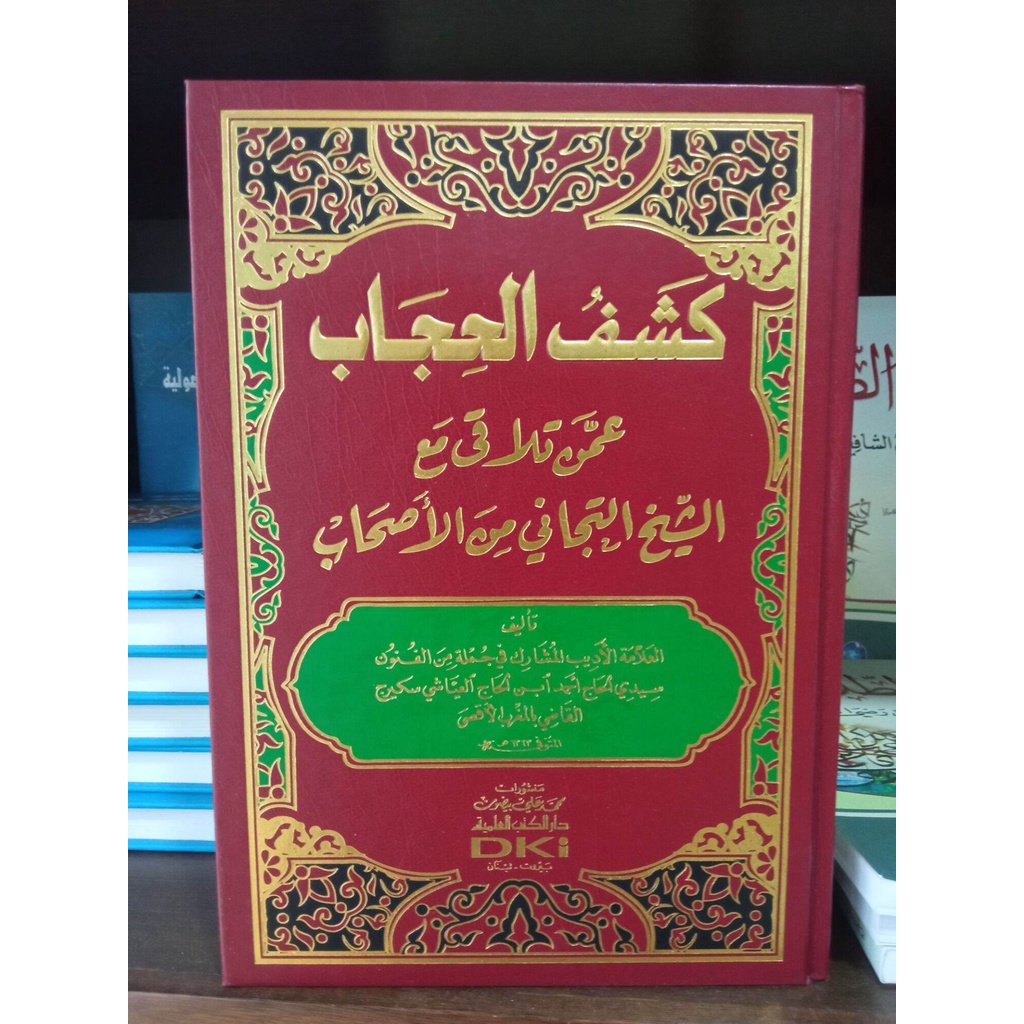 كَشَفُ الحِجَاب
عمَّن تلاقى مَع
الشّيخ التجاني مِنَ الأَصحَاب
تأليف
العلّامة الأديب المشارك في جُملة مِنَ الفنون
سيدي الحاج أحمد ابن الحاج العيّاشي سكيرج
القاضي بالمغرب الأقصى
المتوفى ١٣٦٣ هـ
منشورات
محمد علي بيضون
دار الكتب العلمية
DKi
بيروت - لبنان
صولية
الشافعي